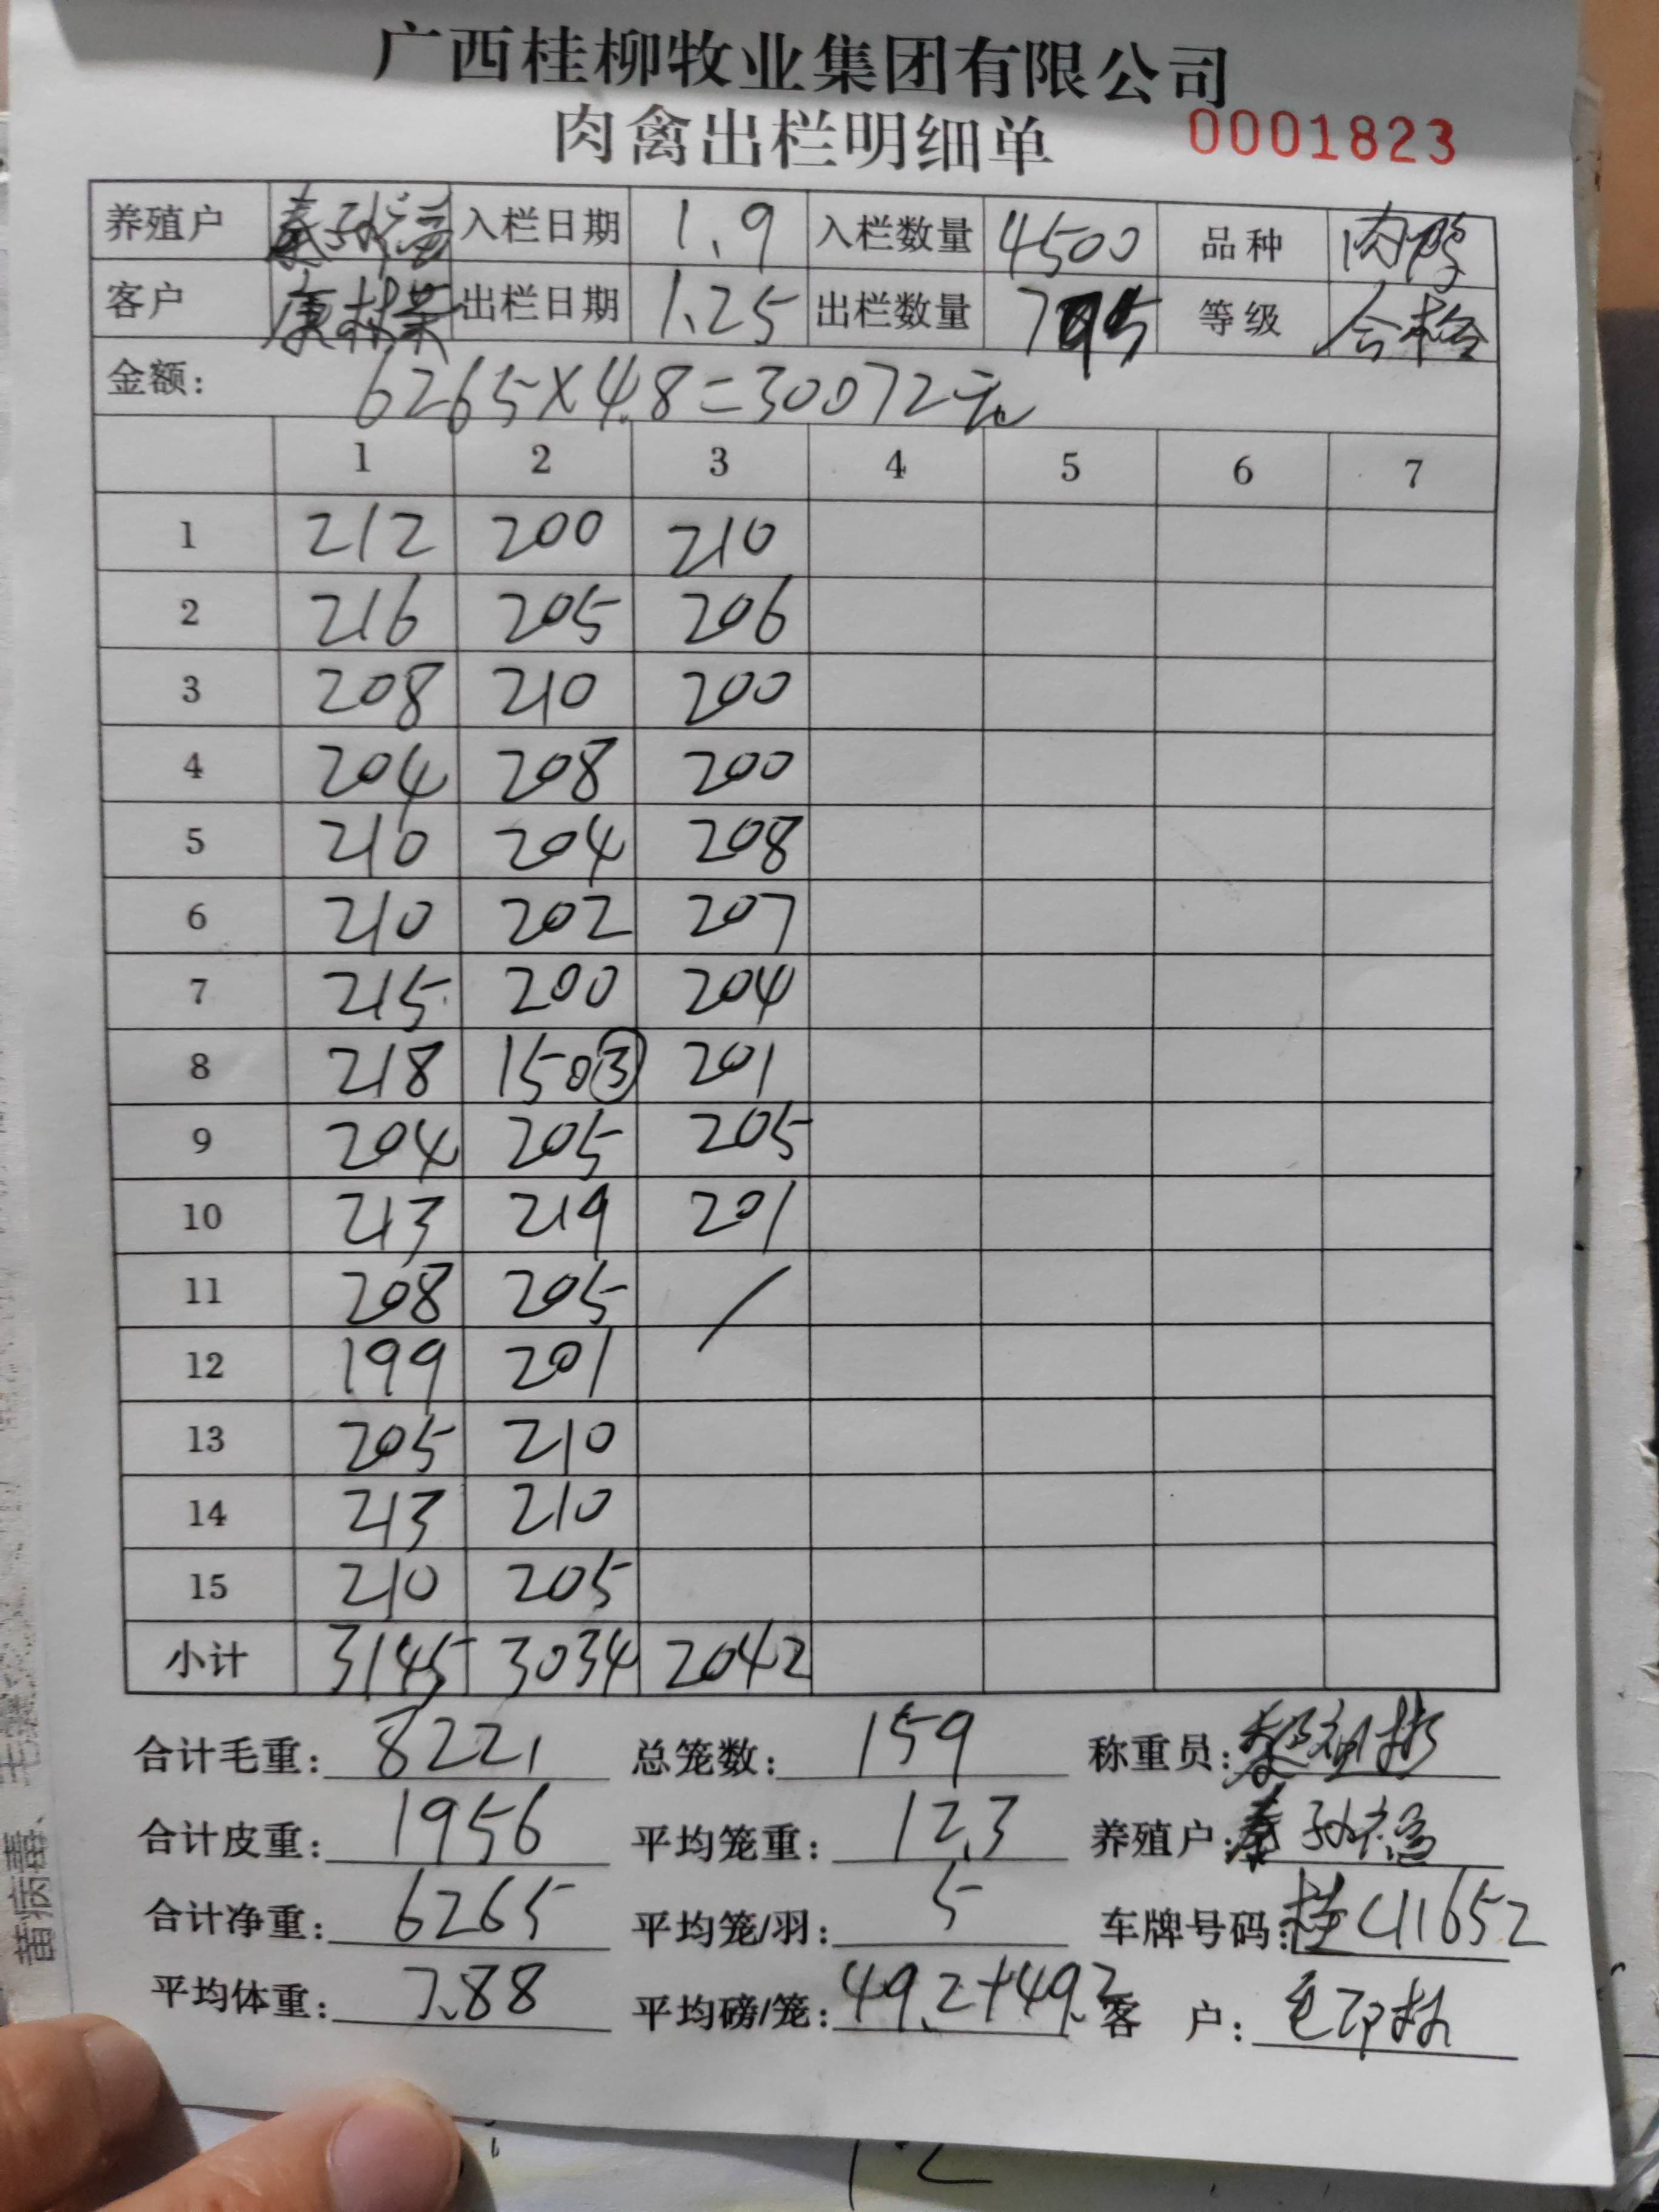 广西桂柳牧业集团有限公司
肉禽出栏明细单 0001823
养殖户 秦孙福 入栏日期 1.9 入栏数量 4500 品种 肉鸭
客户 出栏日期 1.25 出栏数量 795 等级 合格
金额: 6265×4.8=30072元
1 2 3 4 5 6 7
1 212 200 210
2 216 205 206
3 208 210 200
4 204 208 200
5 210 204 208
6 210 202 207
7 215 200 204
8 218 150③ 201
9 204 205 205
10 213 219 201
11 208 205 /
12 199 201
13 205 210
14 213 210
15 210 205
小计 3145 3034 2042
合计毛重: 8221 总笼数: 159 称重员:
合计皮重: 1956 平均笼重: 12.3 养殖户: 秦孙福
合计净重: 6265 平均笼/羽: 5 车牌号码: 桂C11652
平均体重: 7.88 平均磅/笼: 49.2+49.2 客 户: